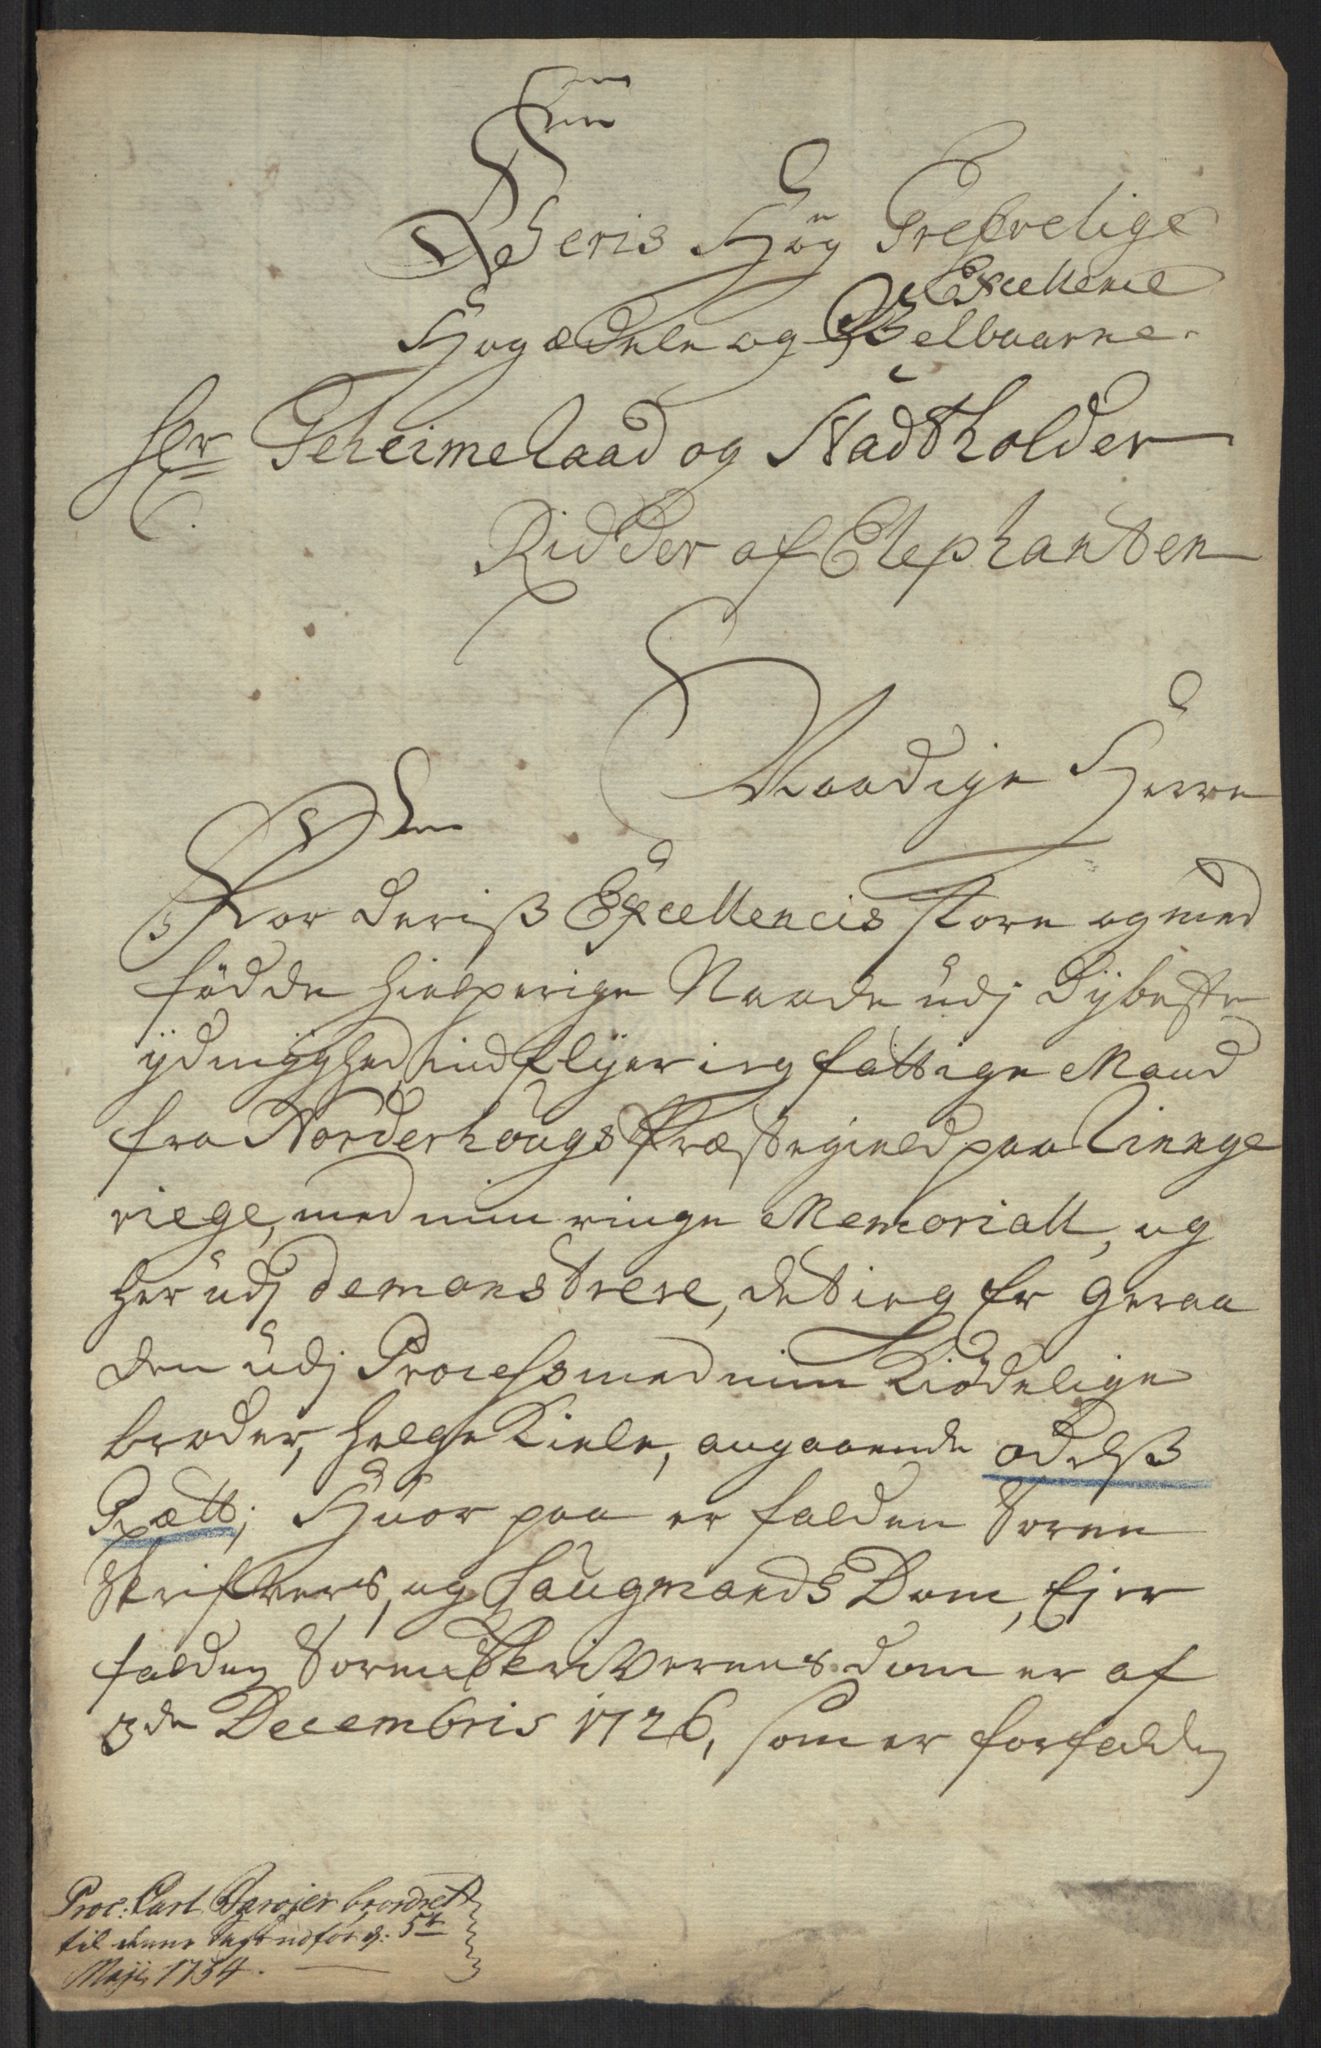 Deris Høy Grefvelige
Excellence
Høyædele og Velbaarne
Hr Geheimeraad og Stadtholder
Ridder af Elephanten
Naadige Herre
For Deriß Excellencis store og med
fødde hielperige Naade udj Dybeste
ydmyghed indflyer ieg fattige Mand
fra Norderhougs Præstegield paa Ringe
riege, med min ringe Memoriall, og
her udj demonstrere, det ieg Er geraa
den udj Process med min Kiødelige
broder, Helge Kiele, angaaende odelß
Rætt; Huor paa er falden Soren
Skrifvers, og Laugmands Dom, Ej er
falden Sorenskriverens dom er af
3de Decembris 1726, som er forfalden
Proc: Carl beordret
til denne Sags udfør d: 5te
Maji 1734.